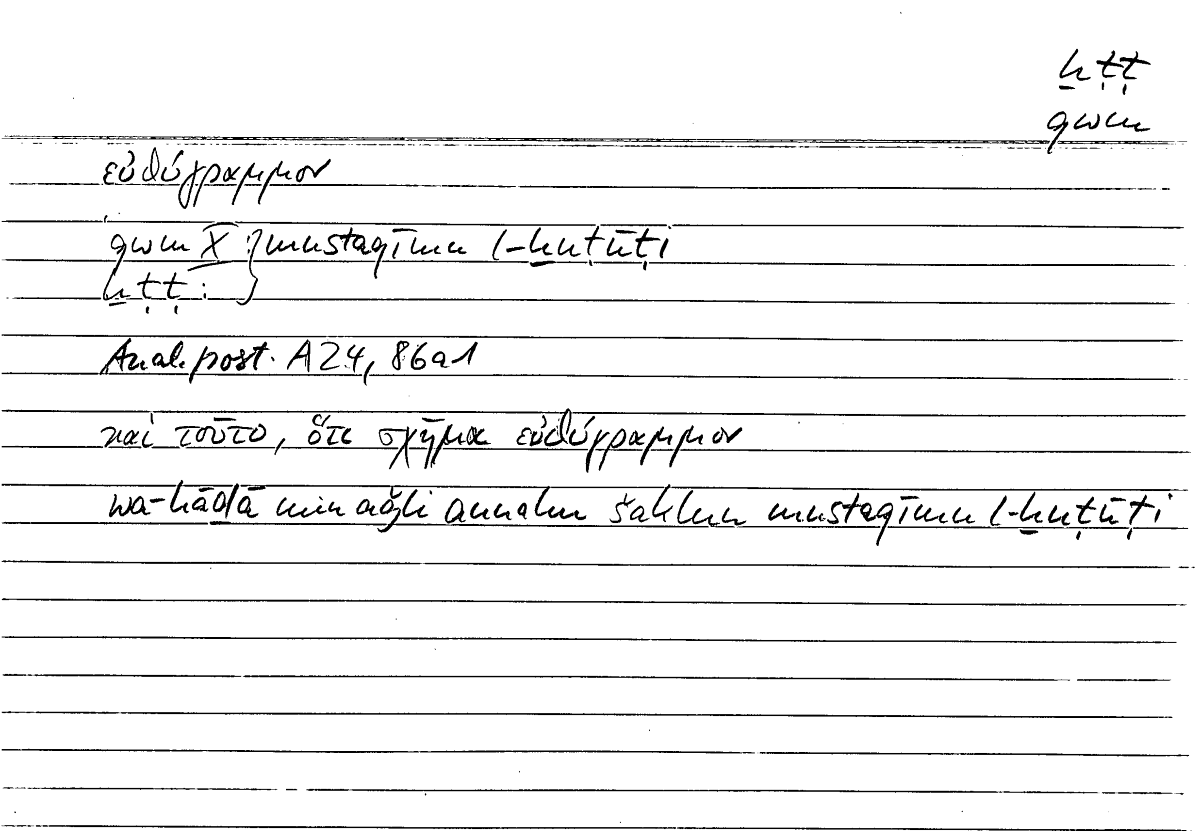 ḫṭṭ
qwm
εὐθύγραμμον
qwm X :} mustaqīmu l-ḫuṭūṭi
ḫṭṭ :
Anal. post. A 24, 86a1
καὶ τοῦτο, ὅτι σχῆμα εὐθύγραμμον
wa-hāḏā min aǧli annahu šaklun mustaqīmu l-ḫuṭūṭi